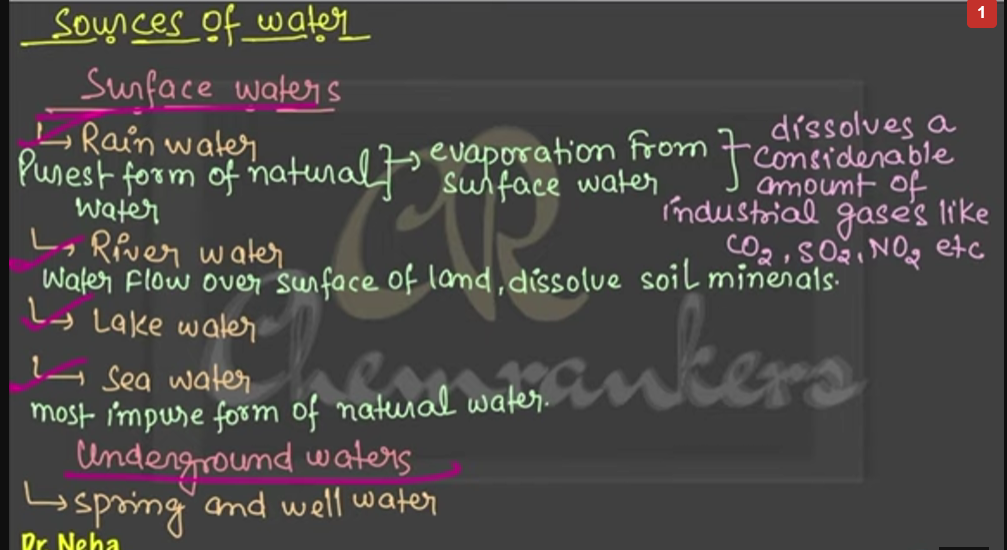 Sources of water
1
Surface waters
↳ Rain water
Purest form of natural water } → evaporation from surface water } dissolves a considerable amount of industrial gases like CO2, SO2, NO2 etc
↳ River water
Water Flow over surface of land, dissolve soil minerals.
↳ Lake water
↳ Sea water
most impure form of natural water.
Underground waters
↳ spring and well water
CR
Chemrankers
Dr Neha